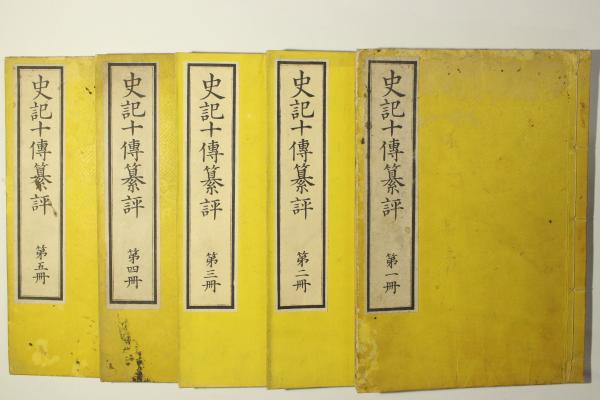 史記十傳纂評 第一冊
史記十傳纂評 第二冊
史記十傳纂評 第三冊
史記十傳纂評 第四冊
史記十傳纂評 第五冊